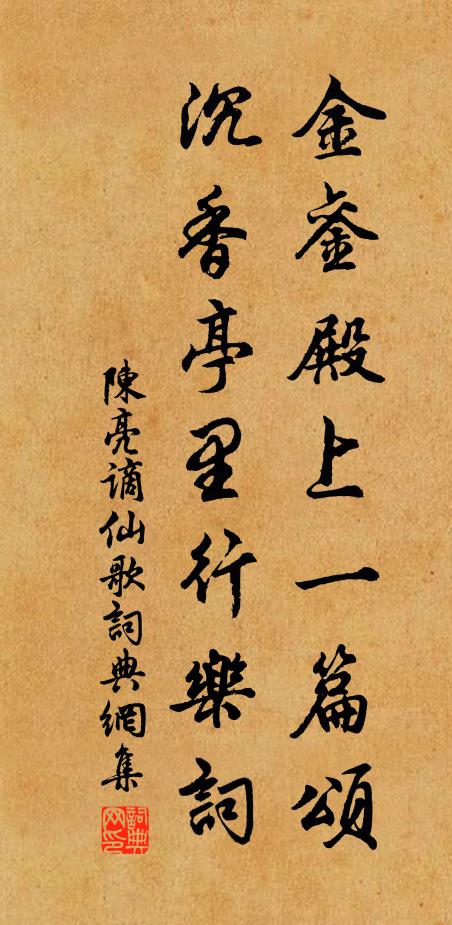 金銮殿上一篇頌
沉香亭里行樂詞
陳亮謫仙歌詞典網集
詞典网印